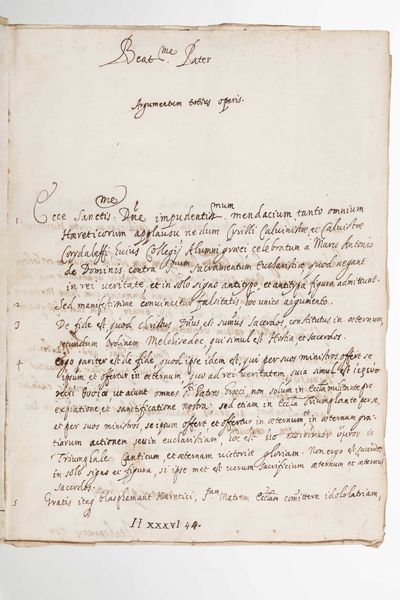 Beat.me Pater
Argumentum totius operis.
1 Ecce Sanct.me D.ne impudentiss.mum mendacium tanto omnium
Hæreticorum applausu ne dum Cyrilli Calvinistæ, et Calvistæ
Corydaleffi huius Collegij Alumni græci celebratum a Marc Antonio
de Dominis, contra Sacramentum Eucharistiæ quod negant
in rei veritate, et in solo signo, antitypo, et antitypa figura admittunt.
2 Sed manifestissime convincitur falsitatis hoc unico argumento.
3 De fide est quod Christus D.nus est summus Sacerdos, constitutus in æternum,
secundum ordinem Melchisedec, qui simul est Hostia et sacerdos.
4 Ergo pariter est de fide, quod ipse idem est, qui per suos ministros offert se
ipsum et offertur in æternum quo ad rei veritatem, quia simul est
ut aiunt omnes S.ti Patres Græci, non solum in Eccl.ia militante pro
expiatione et sanctificatione nostra, sed etiam in Eccl.ia Triumphante per se
et per suos ministros se ipsum offert et offertur in æternum in æternam gra-
tiarum actionem seu in eucharistiam, hoc est
Triumphale Canticum, et æternam victoriæ gloriam. Non ergo est sacerdos
in solo signo et figura, si ipse met est verum Sacrificium æternum et æternus
sacerdos.
5 Gratis itaq blasphemant Hæretici, Matrem Eccl.am committere idololatriam,
II XXXVI 44.